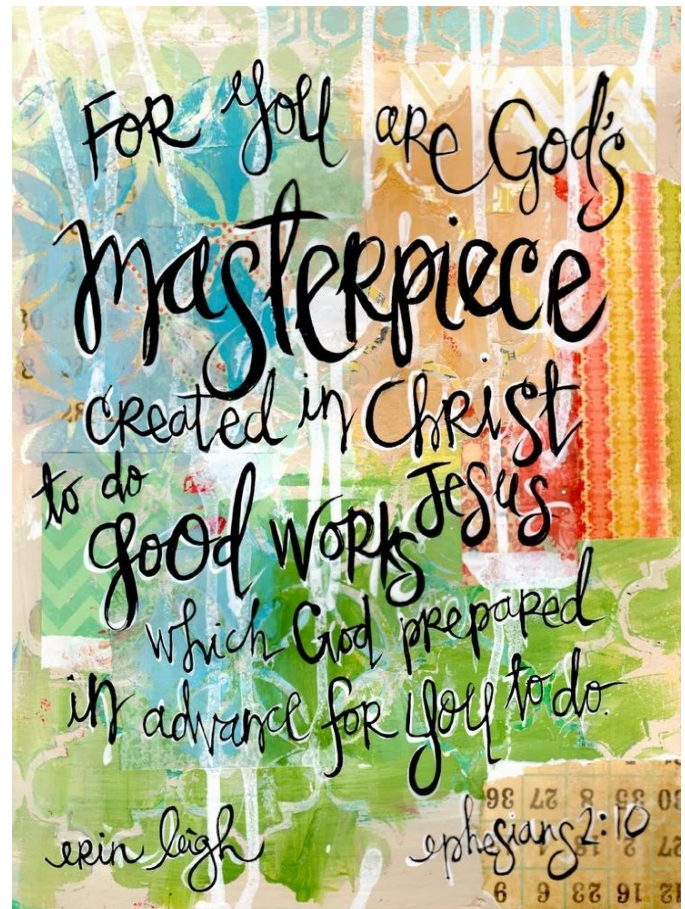 FOR You are God's
masterpiece
created in Christ
to do Jesus
good works
which God prepared
in advance for you to do.
erin leigh ephesians 2:10